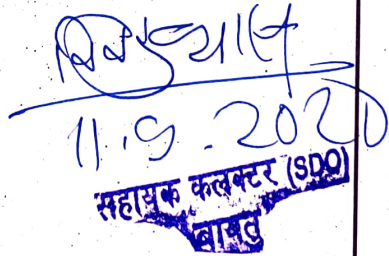 11.9.2020
सहायक कलक्टर (SDO)
बायतु